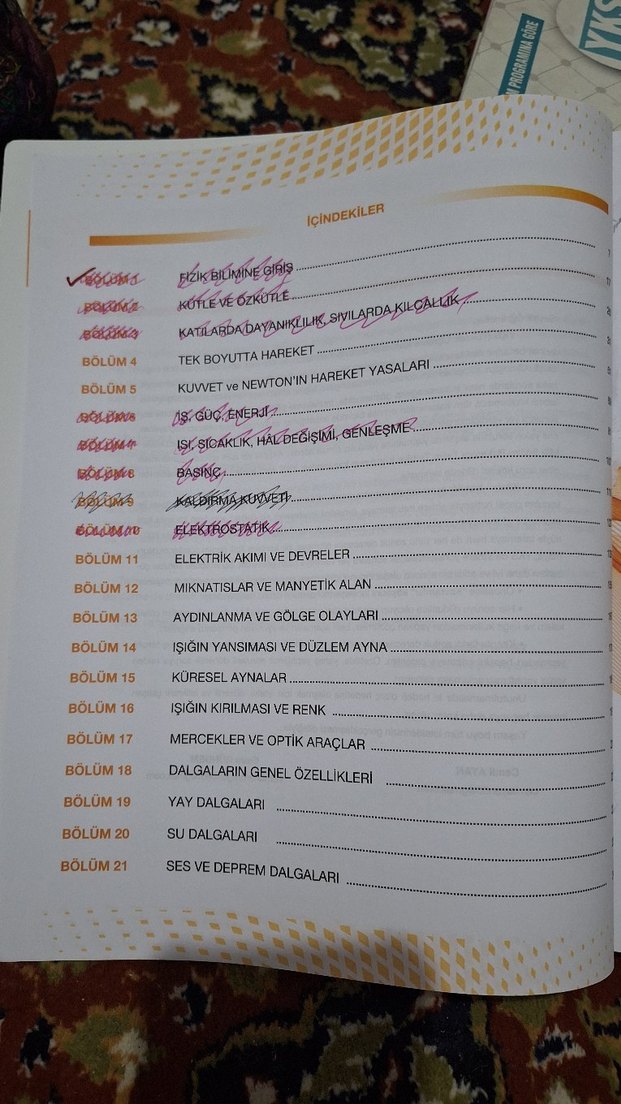 M PROGRAMINA GÖRE
YKS
İÇİNDEKİLER
BÖLÜM 1 FİZİK BİLİMİNE GİRİŞ
BÖLÜM 2 KÜTLE VE ÖZKÜTLE
BÖLÜM 3 KATILARDA DAYANIKLILIK, SIVILARDA KILCALLIK
BÖLÜM 4 TEK BOYUTTA HAREKET
BÖLÜM 5 KUVVET ve NEWTON'IN HAREKET YASALARI
BÖLÜM 6 İŞ, GÜÇ, ENERJİ
BÖLÜM 7 ISI, SICAKLIK, HÂL DEĞİŞİMİ, GENLEŞME
BÖLÜM 8 BASINÇ
BÖLÜM 9 KALDIRMA KUVVETİ
BÖLÜM 10 ELEKTROSTATİK
BÖLÜM 11 ELEKTRİK AKIMI VE DEVRELER
BÖLÜM 12 MIKNATISLAR VE MANYETİK ALAN
BÖLÜM 13 AYDINLANMA VE GÖLGE OLAYLARI
BÖLÜM 14 IŞIĞIN YANSIMASI VE DÜZLEM AYNA
BÖLÜM 15 KÜRESEL AYNALAR
BÖLÜM 16 IŞIĞIN KIRILMASI VE RENK
BÖLÜM 17 MERCEKLER VE OPTİK ARAÇLAR
BÖLÜM 18 DALGALARIN GENEL ÖZELLİKLERİ
BÖLÜM 19 YAY DALGALARI
BÖLÜM 20 SU DALGALARI
BÖLÜM 21 SES VE DEPREM DALGALARI